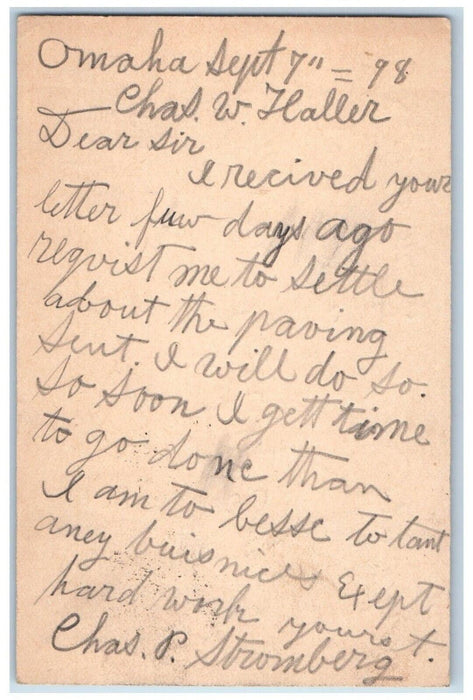 Omaha Sept 7" = 98
Chas. W. Haller
Dear Sir
I recived your
letter fuw days ago
reqvist me to settle
about the paving
Sent. I will do so.
So soon I gett time
to go done than
I am to besse to tant
aney buisnices Exept
hard work yours t.
Chas. P. Stromberg